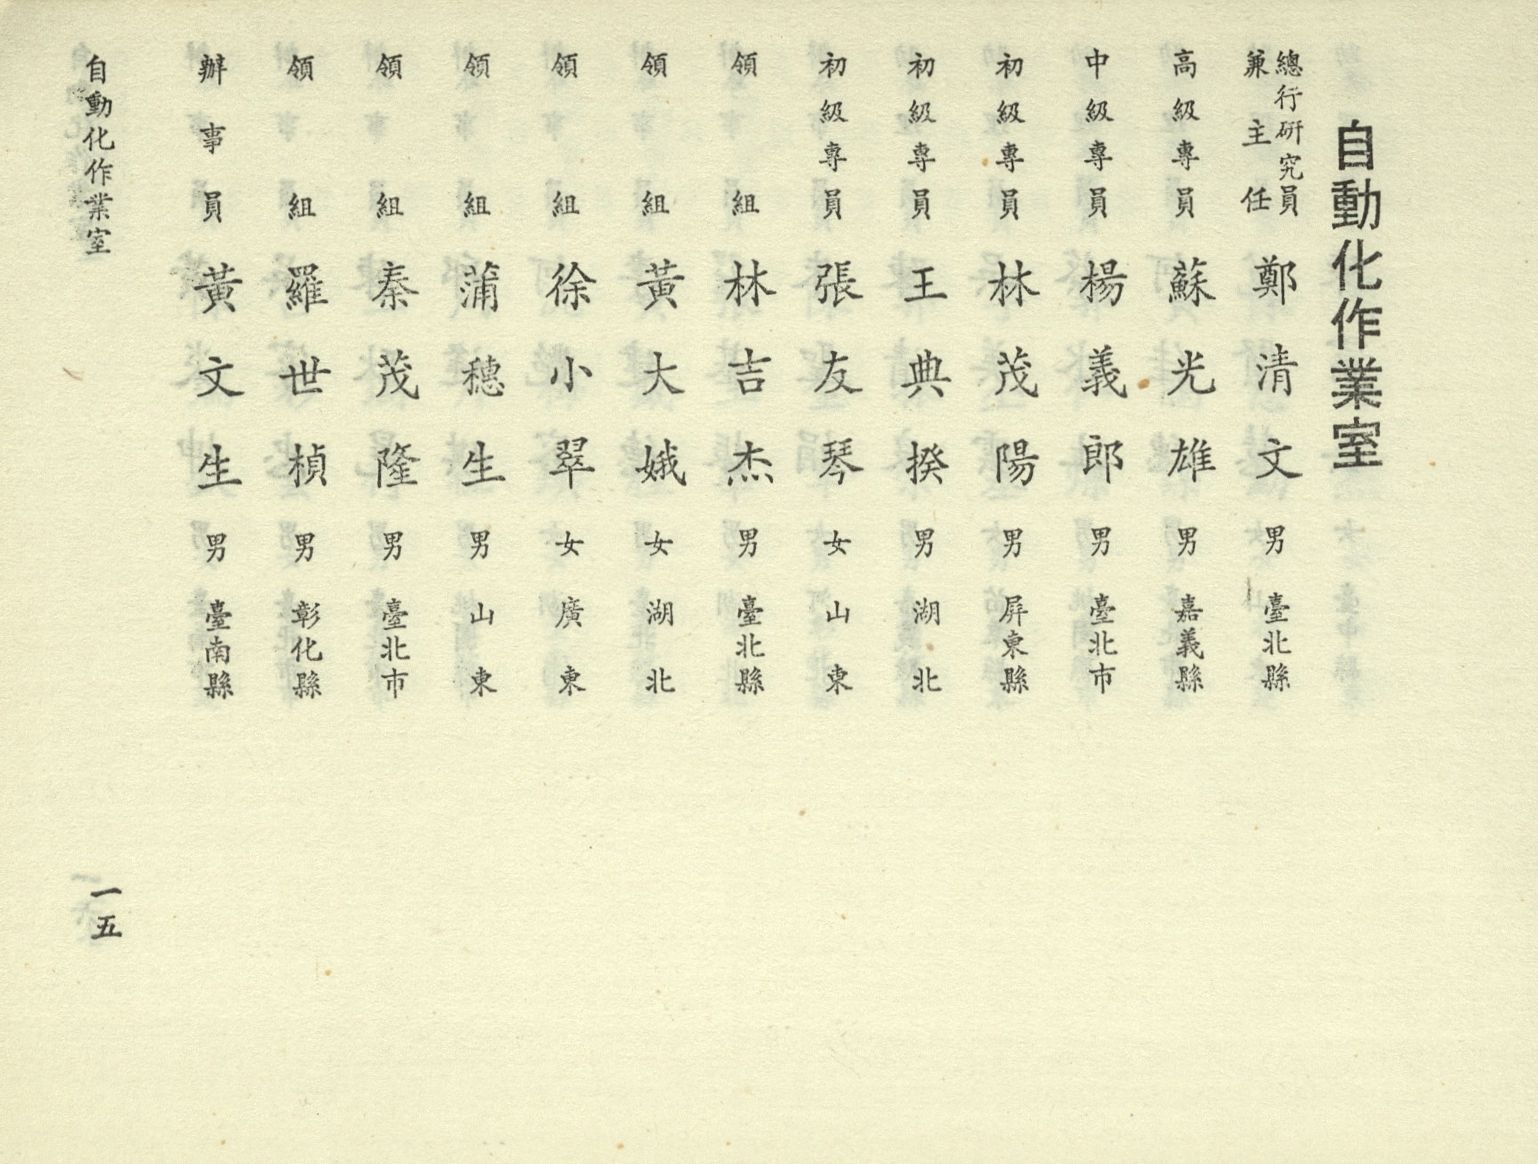 自動化作業室
總行研究員兼主任 鄭清文 男 臺北縣
高級專員 蘇光雄 男 嘉義縣
中級專員 楊義郎 男 臺北市
初級專員 林茂陽 男 屏東縣
初級專員 王典揆 男 湖北
初級專員 張友琴 女 山東
領組 林吉杰 男 臺北縣
領組 黃大娥 女 湖北
領組 徐小翠 女 廣東
領組 蒲穗生 男 山東
領組 秦茂隆 男 臺北市
領組 羅世楨 男 彰化縣
辦事員 黃文生 男 臺南縣
自動化作業室
一五